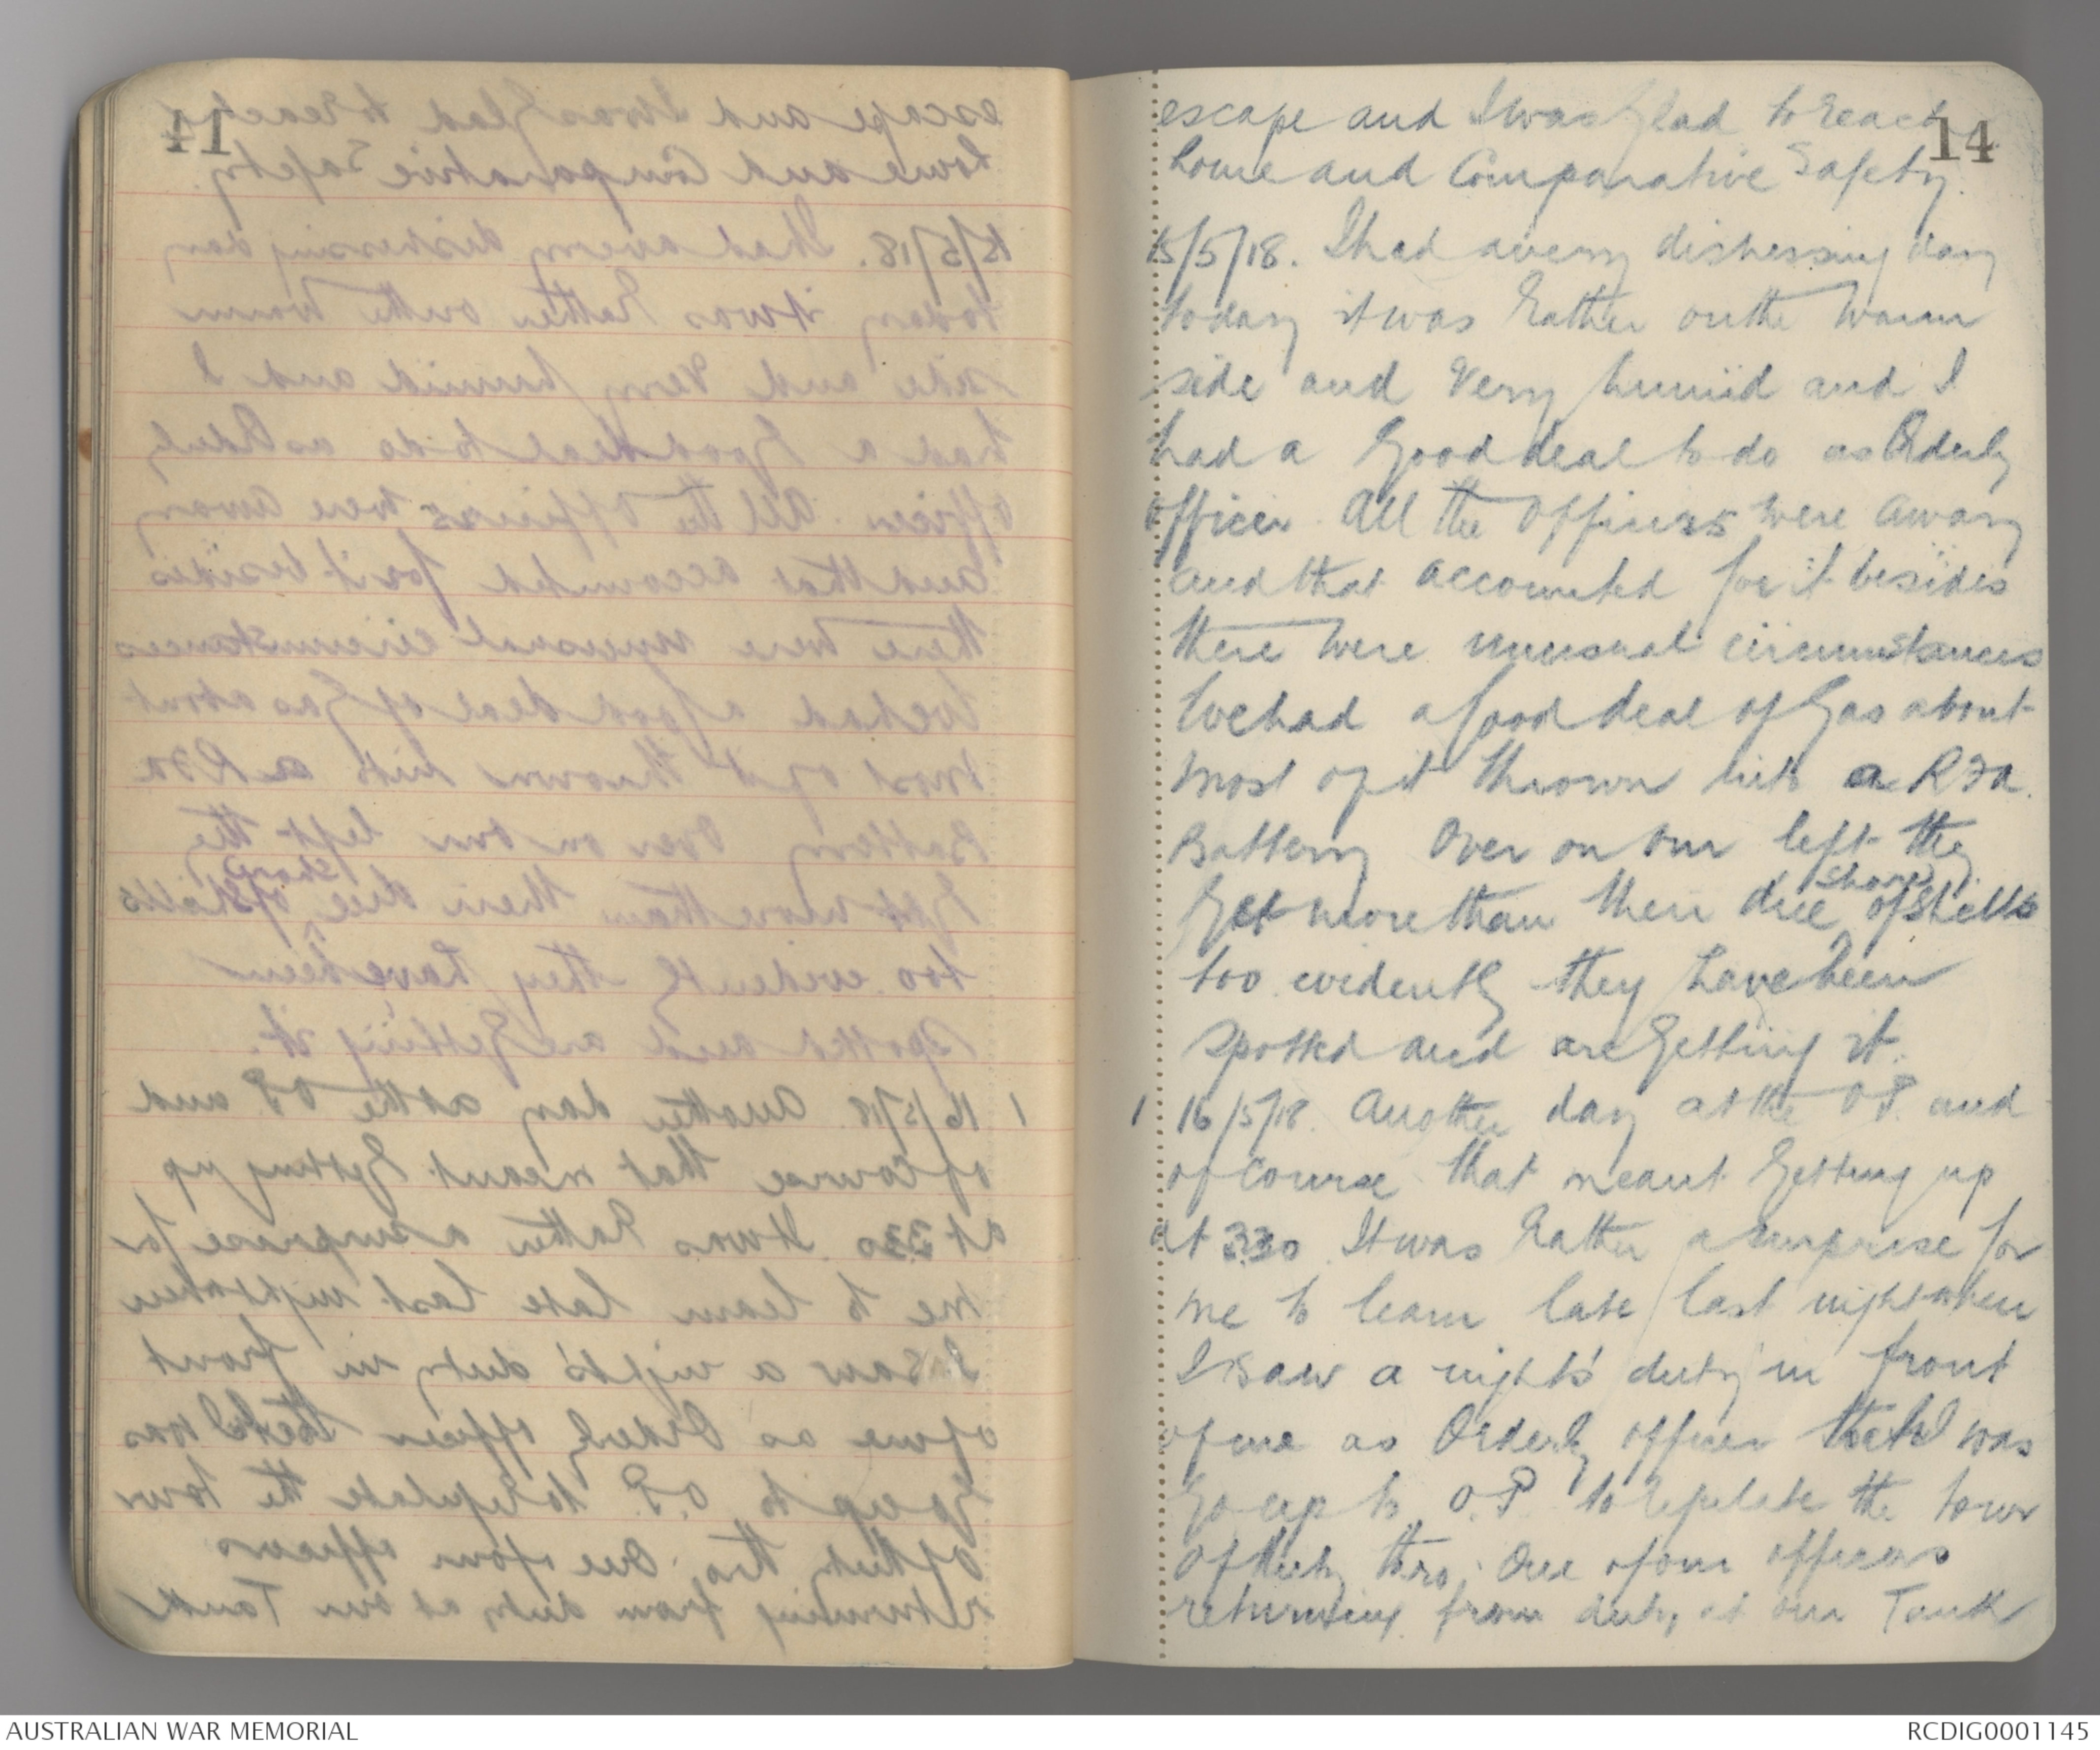 14
escape and I was glad to reach
home and Comparative Safety.
15/5/18. I had a very distressing day
today it was Rather on the warm
side and Very humid and I
had a Good deal to do as Orderly
officer. All the Officers were away
and that accounted for it besides
there were unusual circumstances
We had a good deal of Gas about
most of it thrown into a RFA.
Battery Over on our left they
Get more than their due share of shells
too evidently they have been
spotted and are Getting it.
1 16/5/18. Another day at the OP. and
of course that meant Getting up
at 3.30. It was Rather a surprise for
me to learn late last night when
I saw a night's duty in front
of me as Orderly officer that I was
Go up to O.P. to Regulate the tour
of duty there. One of our officers
returning from duty at our Tank
AUSTRALIAN WAR MEMORIAL
RCDIG0001145